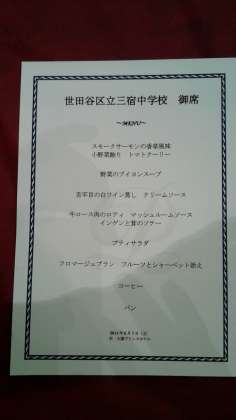 世田谷区立三宿中学校 御席
～MENU～
スモークサーモンの香草風味
小野菜飾り トマトクーリー
野菜のブイヨンスープ
白ワイン蒸し クリームソース
牛ロース肉のロティ マッシュルームソース
インゲンと茸のソテー
プティサラダ
フロマージュブラン フルーツとシャーベット添え
コーヒー
パン